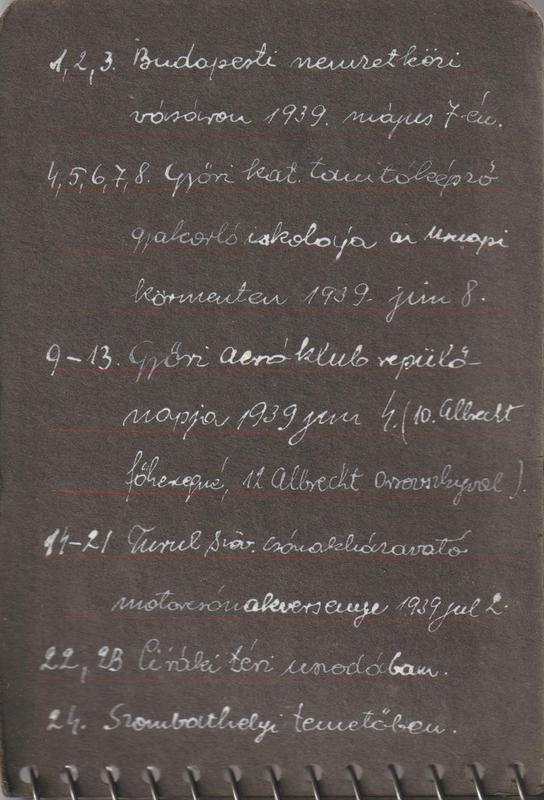 1, 2, 3. Budapesti nemzetközi
vásáron 1939. május 7-én.
4, 5, 6, 7, 8. Győri kat. tanítóképző
gyakorló iskolája az Úrnapi
körmeneten 1939. jún 8.
9-13. Győri aeróklub repülő-
napja 1939 jun 4. (10. Albrecht
főhercegné, 12 Albrecht
14-21 Turul Szöv. csónakházavató
motorcsónakversenye 1939 jul 2.
22, 23 Ciráki téri uszodában.
24. Szombathelyi temetőben.